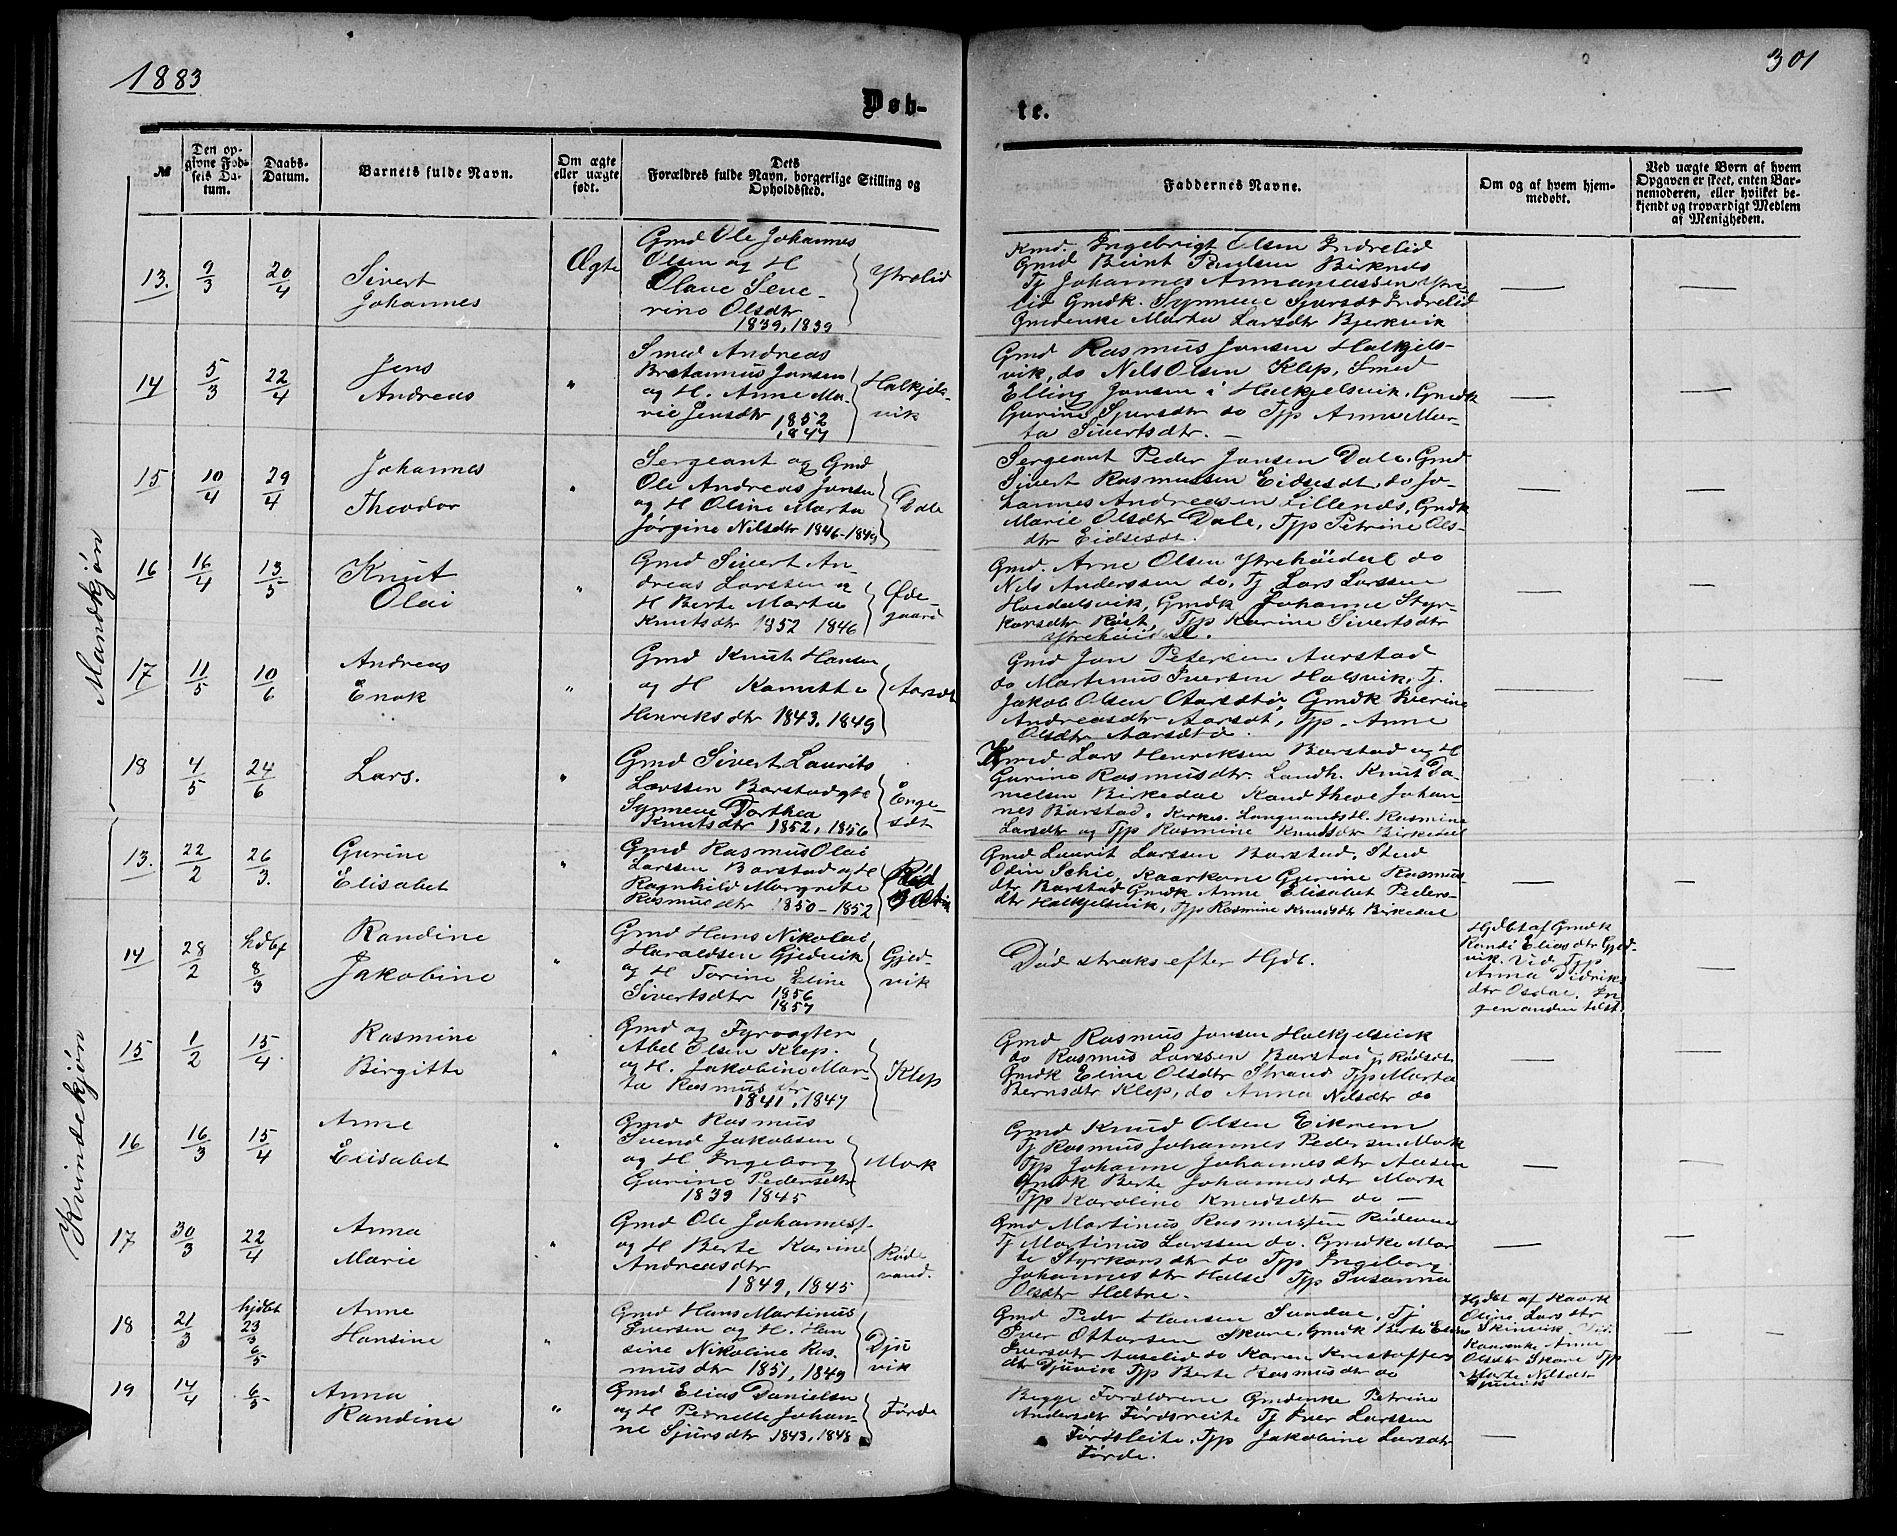 1883
301
Døb-
te.
№
Den op-
givne Fød-
sels Da-
tum.
Daabs-
Datum.
Barnets fulde Navn.
Om ægte
eller uægte
født.
Dets
Forældres fulde Navn, borgerlige Stilling og
Opholdssted.
Faddernes Navne.
Om og af hvem hjem-
medøbt.
Ved uægte Børn af hvem
Opgaven er skeet, enten Bar-
nemoderen, eller hvilket be-
kjendt og troværdigt Medlem
af Menigheden.
Mandkjøn
13. 9/3 20/4
Sivert
Johannes
Ægte
Gmd Ole Johannes
Olsen og H
Olave Seve-
rine Olsdtr
1839, 1839
Ytrelid
Kmd. Ingebrigt Olsen Indrelid
Gmd Bernt Paulsen Birknes
Tj Johannes Ananiassen Ytre-
lid Gmdk. Synneve Sjursdt Indrelid
Gmdenke Marta Larsdtr Bjerkvik
14 5/3 22/4
Jens
Andreas
"
Smed Andreas
Bretanius Jonsen
og H. Anne Ma-
rie Jensdtr 1852
1847
Halkjels-
vik
Gmd Rasmus Jonsen Halkjels-
vik, do Nils Olsen Klep, Smed
Elling Jonsen i Halkjelsvik, Gmdk
Gurine Sjursdtr do Tjp Anne Mar-
ta Sivertsdtr. –
15 10/4 29/4
Johannes
Theodor
"
Sergeant og Gmd
Ole Andreas Jonsen
og H Oline Marta
Jørgine Nilsdtr 1846-1849
Dale
Sergeant Peder Jonsen Dale. Gmd
Sivert Rasmussen Eidsesdt, do Jo-
hannes Andreassen Lillenes, Gmdk
Marie Olsdtr Dale, Tjp Petrine Ols-
dtr Eidsesdt.
16 16/4 13/5
Knut
Olai
"
Gmd Sivert An-
dreas Larssen og
H Berte Marta
Knutsdtr 1852 1846
Øde-
gaard
Gmd. Arne Olsen Ytrehöidal do
Nils Anderssen do, Tj Lars Larssen
Hoidalsvik, Gmdk Johanne Styr-
karsdtr Röst, Tjp Karine Sivertsdtr
Ytrehöidal.
17 11/5 10/6
Andreas
Enok
"
Gmd Knut Hansen
og H Kanutte
Henriksdtr 1843. 1849
Aarsdt
Gmd Jon Petersen Aarstad
do Martinus Iversen Halsvik, Tj.
Jakob Olsen Aarsdtö, Gmdk Iverine
Andreasdtr Aarsdt, Tjp. Anne
Olsdtr Aarsdtö.
18 4/5 24/6
Lars.
"
Gmd Sivert Laurits
Larssen Barstad gt
Synneve Dorthea
Knutsdtr 1852, 1856
Enge-
sdt
Kmd Lars Henriksen Barstad og H
Gurine Rasmusdtr. Landh. Knut Da-
nielsen Birkedal Kand theol Johan-
nes Barstad. Kirkes. H. Rasmine
Larsdtr og Tjp Rasmine Knudsdtr Birkedal
Kvindekjøn
13. 22/2 26/3.
Gurine
Elisabet
"
Gmd Rasmus Olai
Larssen Barstad og H
Ragnhild Margrete
Rasmusdtr 1850-1852
Gmd Laurit Larssen Barstad. Stud
Odin Schie, Kaarkone Gurine Rasmus-
dtr Barstad Gmdk. Anne Elisabet Peders-
dtr Halkjelsvik, Tjp Rasmine Knudsdtr Birkedal
14 28/2 hdbt 8/3
Randine
Jakobine
"
Gmd Hans Nikolai
Haraldsen Gjedvik
og H Torine Eline
Sivertsdtr 1856
1857
Gjed-
vik
Död straks efter Hjdb.
Hjdbt af Gmdk
Randi Eliasdtr Gjed-
vik. Vid. Tjp
Anna Didriks-
dtr Osdal. In-
gen anden tilst.
15 1/2 15/4.
Rasmine
Birgitte
"
Gmd og Fyrvogter
Abel Olsen Klep.
og H. Jakobine Mar-
ta Rasmusdtr
1841, 1847
Klep
Gmd Rasmus Jonsen Halkjelsvik
do Rasmus Larssen Barstad p Rødsdt
Gmdk Eline Olsdtr Strand Tjp Marta
Berntsdtr Klep, do Anna Nilsdtr do
16 16/3 15/4
Anne
Elisabet
"
Gmd Rasmus
Svend Jakobsen
og H Ingeborg
Gurine Pedersdtr
1839 1845
Mork
Gmd Knud Olsen Eikrem
Tj Rasmus Johannes Pedersen Mork
Tjp Johanne Johannesdtr Aasen
Gmdk Berte Johannesdtr Mork
Tjp Karoline Knudsdtr do –
17 30/3 22/4
Anna
Marie
"
Gmd Ole Johannes
og H Berte Karine
Andreasdtr
1849, 1845
Röde
vand.
Gmd Martinus Rasmussen Rödevan
Tj Martinus Larssen do. Gmdke Mar
te Styrkarsdtr do Tjp Ingeborg
Johannesdtr Halse Tjp Susanna
Olsdtr Heltne.
18 21/3 hjdbt 23/3 6/5
Anne
Hansine
"
Gmd Hans Martinus
Iversen og H. Han
sine Nikoline Ras.
musdtr 1851, 1849
Dju
vik
Gmd Peder Hansen Sundal, Tj
Iver Ottarsen Skare, Gmdk Berte Eline
Iversdtr Aaselid do Karen Kristoffers
dtr Djuvik Tjp Berte Rasmusdtr do
Hjdbt af Kaark
Eline Larsdtr
Skinvik. Vid.
Kaarenke Anne
Olsdtr Skare Tjp
Marte Nilsdtr
Djuvik
19 14/4 6/5
Anna
Randine
"
Gmd Elias Danielsen
og H Pernelle Johan-
ne Sjursdtr 1843, 1848
Førde
Begge Forældrene Gmdenke Petrine
Andersdtr Førdsleite Tj Iver Larssen
Førdsleite, Tjp Jakobine Larsdtr
Førde.